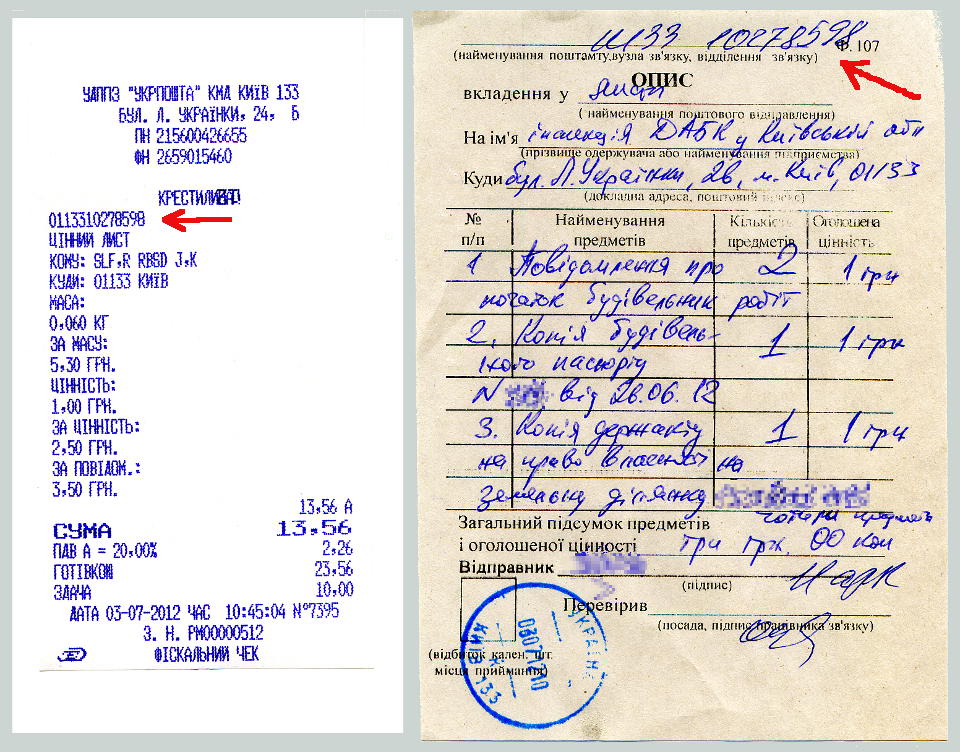 УДППЗ "УКРПОШТА" КМД КИЇВ 133
БУЛ. Л. УКРАЇНКИ, 24, Б
ПН 215600426655
ФН 2659015460
0113310278598
ЦІННИЙ ЛИСТ
КОМУ: SLF,R RBSD J,K
КУДИ: 01133 КИЇВ
МАСА:
0,060 КГ
ЗА МАСУ:
5,30 ГРН.
ЦІННІСТЬ:
1,00 ГРН.
ЗА ЦІННІСТЬ:
2,50 ГРН.
ЗА ПОВІДОМ.:
3,50 ГРН.
13,56 А
СУМА 13,56
ПДВ А = 20,00% 2,26
ГОТІВКОЮ 23,56
ЗДАЧА 10,00
ДАТА 03-07-2012 ЧАС 10:45:04 №7395
З. Н. РМ00000512
ФІСКАЛЬНИЙ ЧЕК
Ш133 10278598 Ф. 107
(найменування поштамту,вузла зв'язку, відділення зв'язку)
ОПИС
вкладення у
( найменування поштового відправлення)
На ім'я інспекція ДАБК у Київській обл
(прізвище одержувача або найменування підприємства)
Куди бул. Л. Українки, 26, м. Київ, 01133
(докладна адреса, поштовий індекс)
№ п/п Найменування предметів Кількість предметів Оголошена цінність
1 Повідомлення про 2 1 грн
початок будівельник робіт
2. Копія будівель- 1 1 грн
ного паспорту
N від 26.06.12
3. Копія держакту 1 1 грн
на право власності на
земельну ділянку
Загальний підсумок предметів чотири предмети
і оголошеної цінності три грн. 00 коп
Відправник
(підпис)
Перевірив
(посада, підпис працівника зв'язку)
(відбиток кален. шт.
місця приймання)
УКРАЇНА
КИЇВ 133